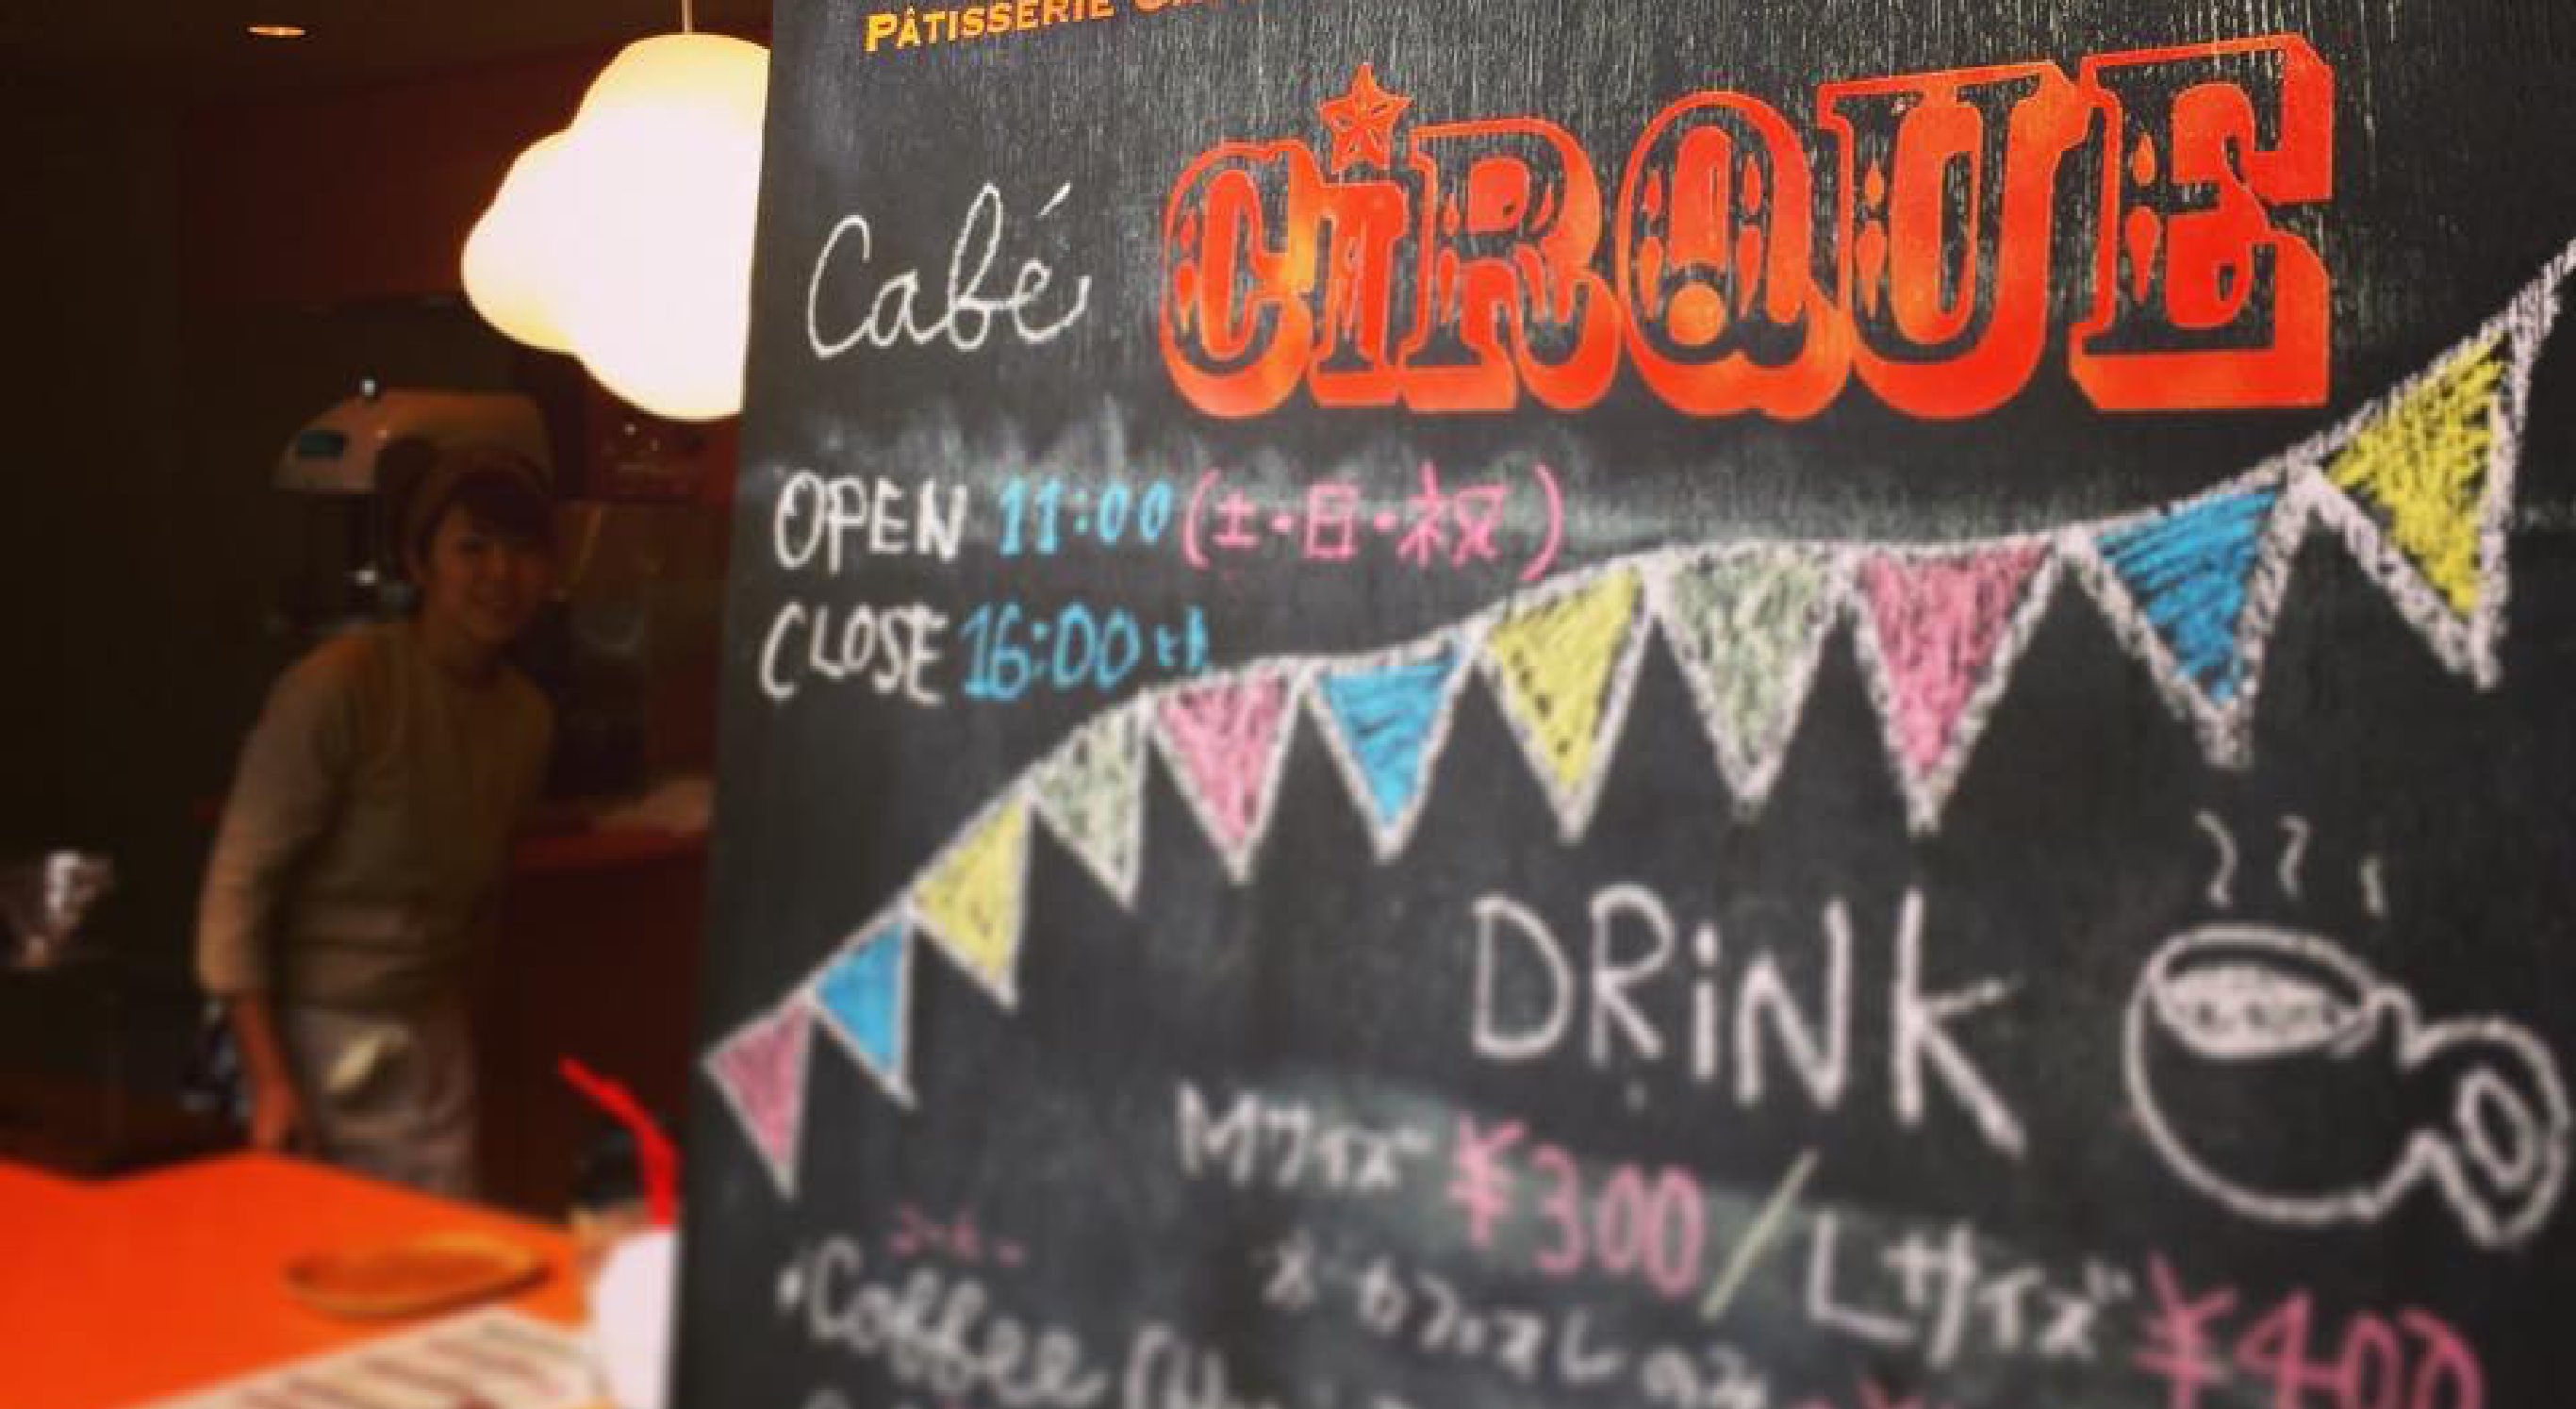 PÂTISSERIE
Café CIRQUE
OPEN 11:00 (土・日・祝)
CLOSE 16:00
DRiNK
Mサイズ ¥300 / Lサイズ ¥400
コーヒー
・Coffee